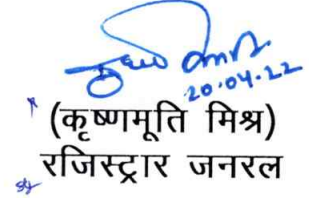 20.04.22
(कृष्णमूति मिश्र)
रजिस्ट्रार जनरल